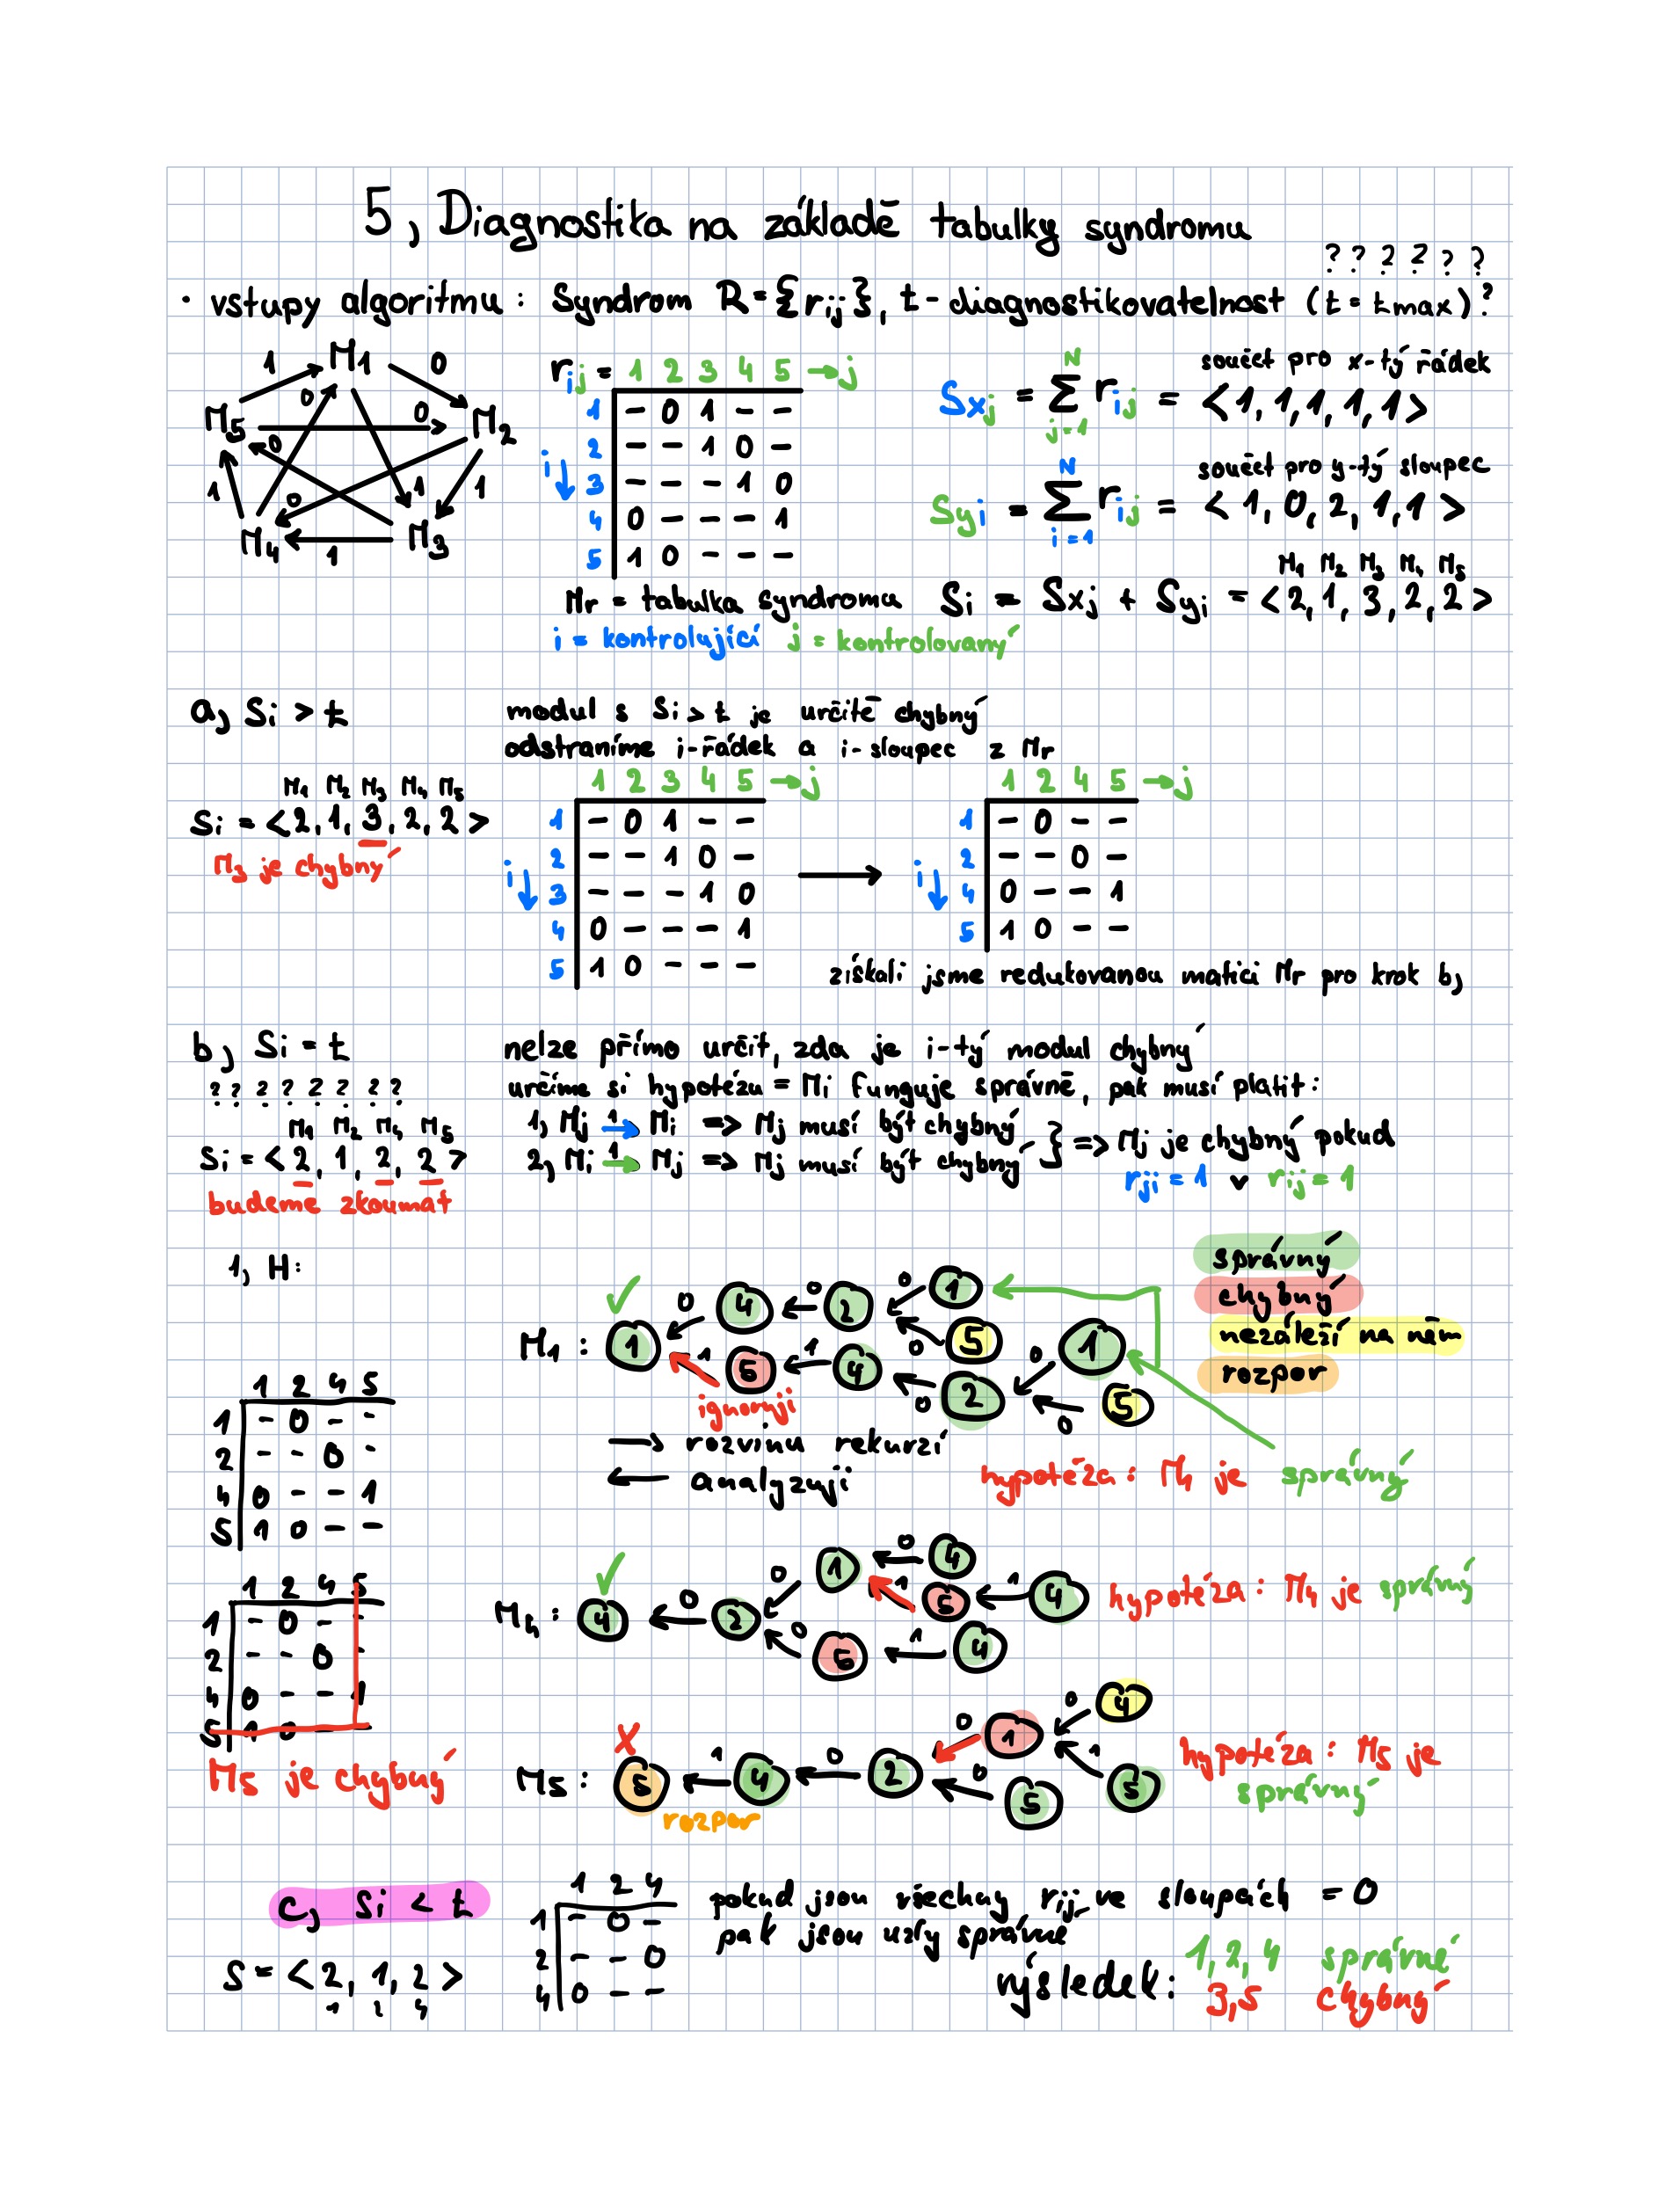 5, Diagnostika na základě tabulky syndromu
? ? ? ? ? ?
· vstupy algoritmu : Syndrom R={rij}, t-diagnostikovatelnost (t = tmax)?
M1
M2
M3
M4
M5
1 0 0 0 0 0 1 1 1 1
rij = 1 2 3 4 5 → j
i ↓
1 - 0 1 - -
2 - - 1 0 -
3 - - - 1 0
4 0 - - - 1
5 1 0 - - -
Mr = tabulka syndromu
i = kontrolující j = kontrolovaný
součet pro x-tý řádek
Sxj = Σ j=1 N rij = <1,1,1,1,1>
součet pro y-tý sloupec
Syi = Σ i=1 N rij = <1,0,2,1,1>
M1 M2 M3 M4 M5
Si = Sxj + Syi = <2,1,3,2,2>
a, Si > t
modul s Si > t je určitě chybný
odstraníme i-řádek a i-sloupec z Mr
M1 M2 M3 M4 M5
Si = <2,1,3,2,2>
M3 je chybný
1 2 3 4 5 → j
i ↓
1 - 0 1 - -
2 - - 1 0 -
3 - - - 1 0
4 0 - - - 1
5 1 0 - - -
→
1 2 4 5 → j
i ↓
1 - 0 - -
2 - - 0 -
4 0 - - 1
5 1 0 - -
získali jsme redukovanou matici Mr pro krok b,
b, Si = t
? ? ? ? ? ? ? ?
nelze přímo určit, zda je i-tý modul chybný
určíme si hypotézu = Mi funguje správně, pak musí platit:
1, Mj 1→ Mi => Mj musí být chybný
2, Mi 1→ Mj => Mj musí být chybný } => Mj je chybný pokud
rji = 1 v rij = 1
M1 M2 M4 M5
Si = <2, 1, 2, 2>
budeme zkoumat
správný
chybný
nezáleží na něm
rozpor
1, H:
M1 : 1 0 4 0 2 0 1
0 5
1 5 1 4 0 2 0 1
0 5
ignoruji
→ rozvinu rekurzí
← analyzuji
hypotéza : M1 je správný
1 2 4 5
1 - 0 - -
2 - - 0 -
4 0 - - 1
5 1 0 - -
M4 : 4 0 2 0 1 0 4
1 5 1 4
0 5 1 4
hypotéza : M4 je správný
1 2 4 5
1 - 0 - -
2 - - 0 -
4 0 - - 1
5 1 0
M5 je chybný
x
M5 : 5 1 4 0 2 0 1 0 4
1 5
0 5
rozpor
hypotéza : M5 je
správný
c, Si < t
S = <2, 1, 2>
1 2 4
1 2 4
1 - 0 -
2 - - 0
4 0 - -
pokud jsou všechny rij ve sloupcích = 0
pak jsou uzly správné
výsledek: 1,2,4 správné
3,5 chybný